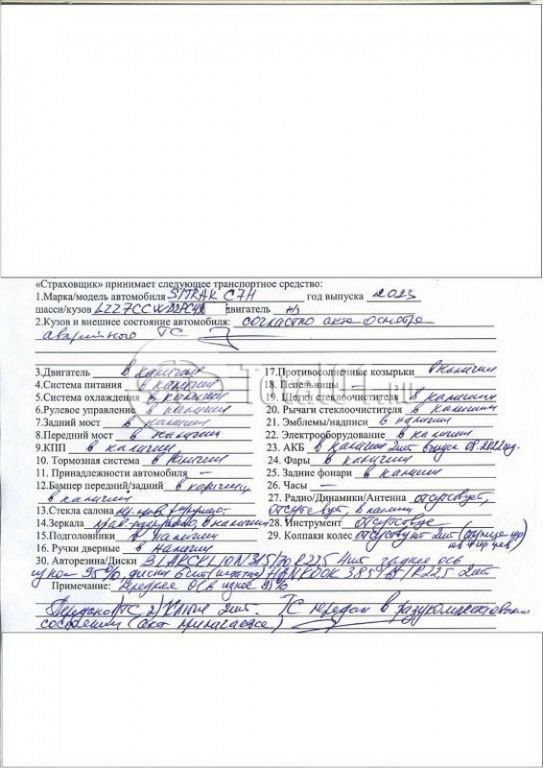 «Страховщик» принимает следующее транспортное средство:
1.Марка/модель автомобиля SITRAK C7H год выпуска 2023
шасси/кузов LZZ7CCWD2PC двигатель н/з
2.Кузов и внешнее состояние автомобиля: согласно акта осмотра
аварийного ТС
3.Двигатель в наличии
4.Система питания в наличии
5.Система охлаждения в наличии
6.Рулевое управление в наличии
7.Задний мост в наличии
8.Передний мост в наличии
9.КПП в наличии
10. Тормозная система в наличии
11. Принадлежности автомобиля —
12.Бампер передний/задний в наличии,
в наличии
13.Стекла салона
14.Зеркала прав. разрушено, в наличии
15.Подголовники в наличии
16. Ручки дверные в наличии
17.Противосолнечные козырьки в наличии
18. Пепельницы —
19. Щетки стеклоочистителя в наличии
20. Рычаги стеклоочистителя в наличии
21. Эмблемы/надписи в наличии
22. Электрооборудование в наличии
23. АКБ в наличии 2шт выпуск 08.2022
24. Фары в наличии
25. Задние фонари в наличии
26. Часы —
27. Радио/Динамики/Антенна отсутствует,
отсутствует, в наличии
28. Инструмент отсутствует
29. Колпаки колес отсутствуют 2шт
30. Авторезина/Диски BLACKLION 315/70 R22.5 4шт заднее ось
износ 95% диски 6шт HANKOOK 385/ R22.5 2шт
Примечание: передняя ось износ %
ТС 2) Ключ 2шт. ТС передан в разукомплектованном
состоянии (акт прилагается)